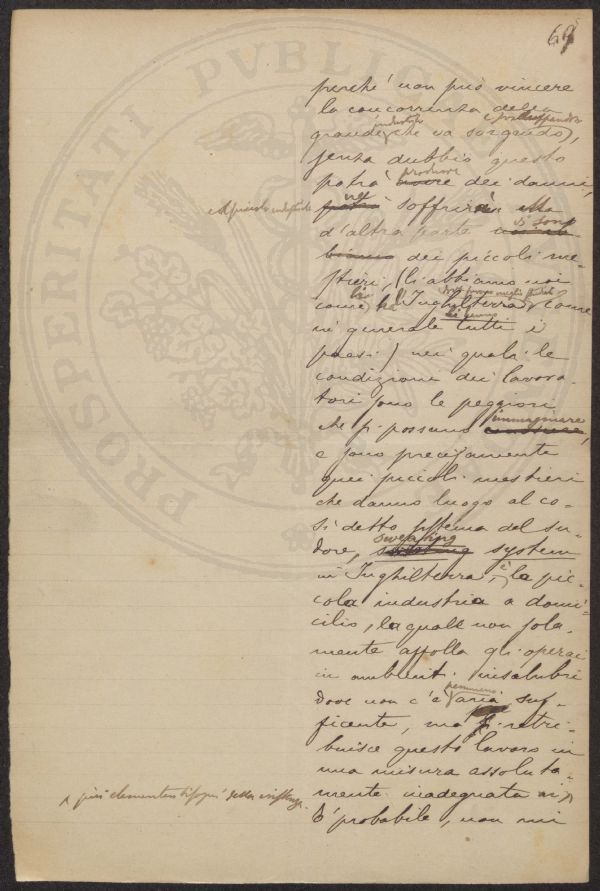 69
perché non può vincere
la concorrenza della
grande industria che va sorgendo,
senza dubbio questo
potrà produrre dei danni,
alla piccola industria
soffrirà
d'altra parte vi sono
dei piccoli me-
stieri, (li abbiamo noi
come li ha l'Inghilterra, come
in generale tutti i
paesi) nei quali le
condizioni dei lavora-
tori sono le peggiori
che si possano immaginare,
e sono precisamente
quei piccoli mestieri
che danno luogo al co-
sì detto sistema del su-
dore, sweating system
in Inghilterra, è la pic-
cola industria a domi-
cilio, la quale non sola-
mente affolla gli operai
in ambienti insalubri
dove non c'è nemmeno aria suf-
ficente, ma retri-
buisce questo lavoro in
una misura assoluta-
mente inadeguata ai
più elementari bisogni della esistenza.
È probabile, non mi
PROSPERITATI PVBLICAE